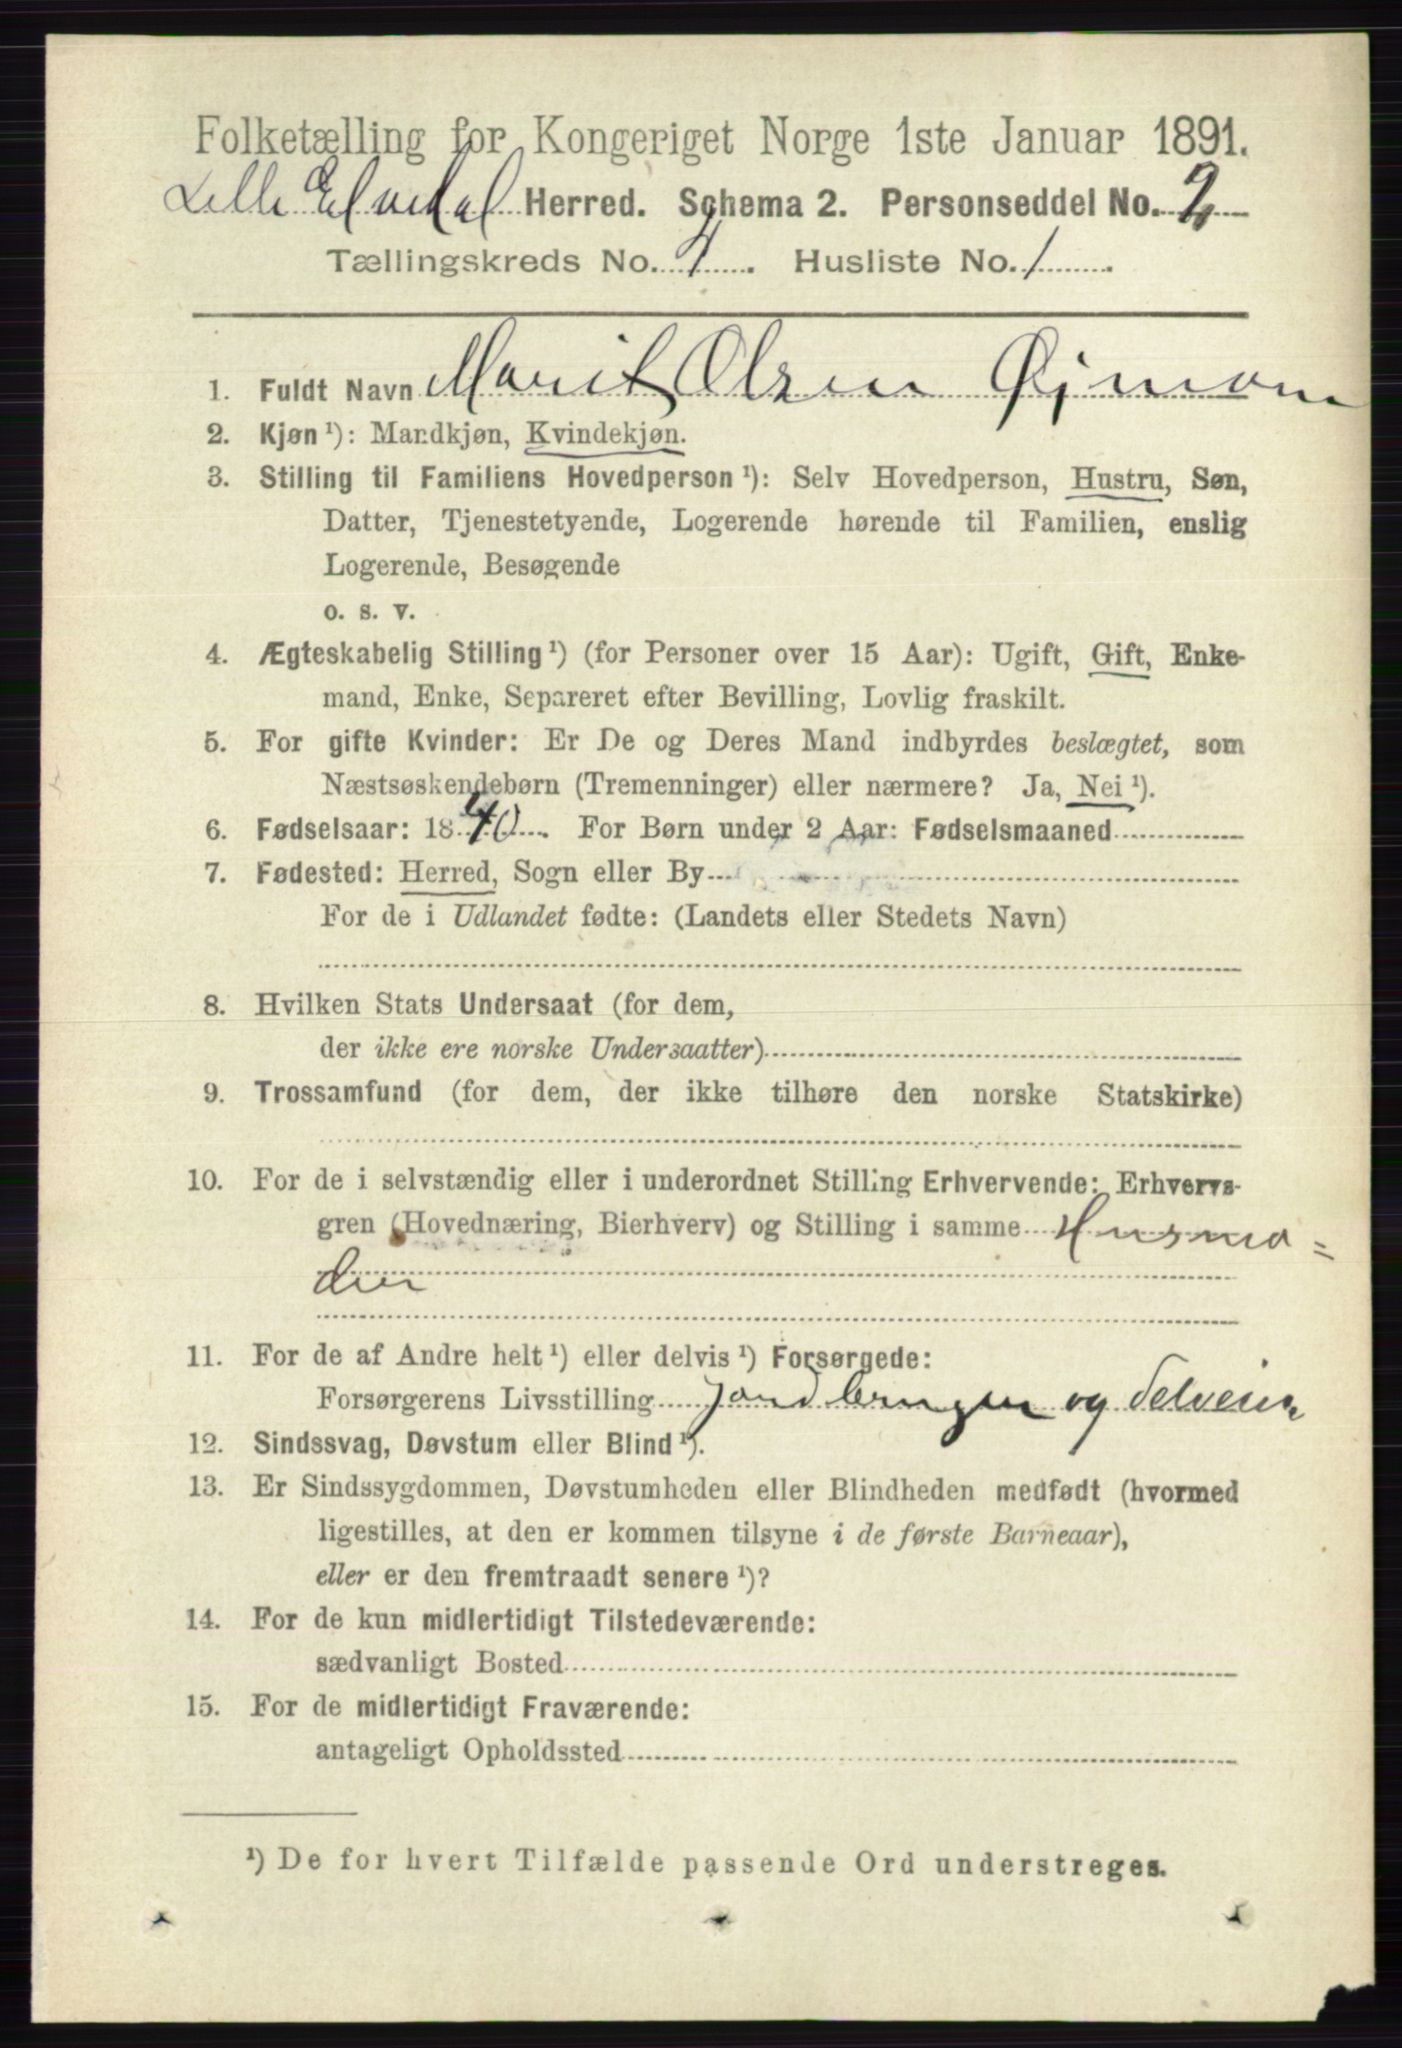 Folketælling for Kongeriget Norge 1ste Januar 1891.
Lille Elvedal Herred. Schema 2. Personseddel No. 2
Tællingskreds No. 4. Husliste No. 1.
1. Fuldt Navn Marit Olsen Øjmoen
2. Kjøn ¹): Mandkjøn, Kvindekjøn.
3. Stilling til Familiens Hovedperson ¹): Selv Hovedperson, Hustru, Søn,
Datter, Tjenestetyende, Logerende hørende til Familien, enslig
Logerende, Besøgende
o. s. v.
4. Ægteskabelig Stilling ¹) (for Personer over 15 Aar): Ugift, Gift, Enke-
mand, Enke, Separeret efter Bevilling, Lovlig fraskilt.
5. For gifte Kvinder: Er De og Deres Mand indbyrdes beslægtet, som
Næstsøskendebørn (Tremenninger) eller nærmere? Ja, Nei ¹).
6. Fødselsaar: 1840. For Børn under 2 Aar: Fødselsmaaned
7. Fødested: Herred, Sogn eller By
For de i Udlandet fødte: (Landets eller Stedets Navn)
8. Hvilken Stats Undersaat (for dem,
der ikke ere norske Undersaatter)
9. Trossamfund (for dem, der ikke tilhøre den norske Statskirke)
10. For de i selvstændig eller i underordnet Stilling Erhvervende: Erhvervs-
gren (Hovednæring, Bierhverv) og Stilling i samme Husmo=
der
11. For de af Andre helt ¹) eller delvis ¹) Forsørgede:
Forsørgerens Livsstilling Jordbruger og Selveier
12. Sindssvag, Døvstum eller Blind ¹).
13. Er Sindssygdommen, Døvstumheden eller Blindheden medfødt (hvormed
ligestilles, at den er kommen tilsyne i de første Barneaar),
eller er den fremtraadt senere ¹)?
14. For de kun midlertidigt Tilstedeværende:
sædvanligt Bosted
15. For de midlertidigt Fraværende:
antageligt Opholdssted
¹) De for hvert Tilfælde passende Ord understreges.